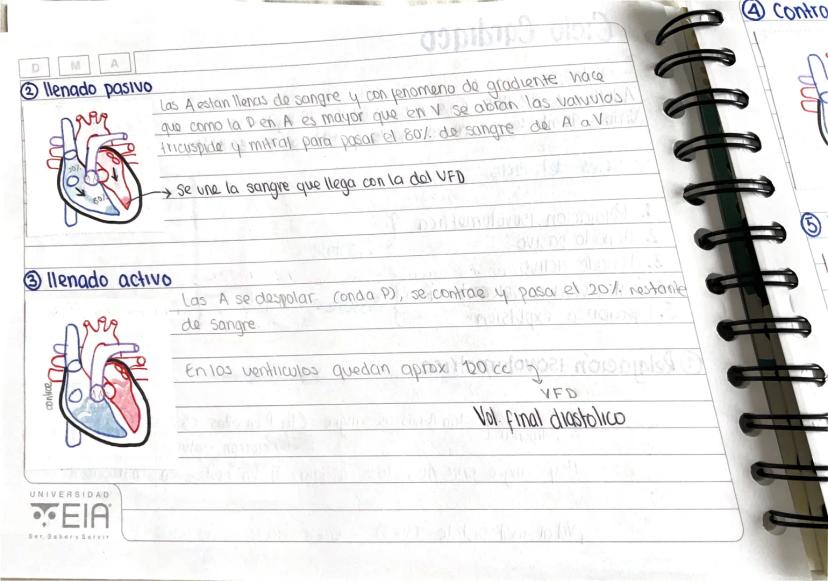 D M A
② llenado pasivo
Las A estan llenas de sangre y con fenomeno de gradiente hace
que como la P en A es mayor que en V se abran las valvulas
tricuspide y mitral para pasar el 80% de sangre de A a V.
20%
80%
→ Se une la sangre que llega con la del VFD
③ llenado activo
Las A se despolar (onda P), se contrae y pasa el 20% restante
de sangre
contrae
En los ventriculos quedan aprox 120 cc
VFD
Vol. final diastolico
UNIVERSIDAD
EIA
Ser, Saber y Servir
④ Contro
⑤